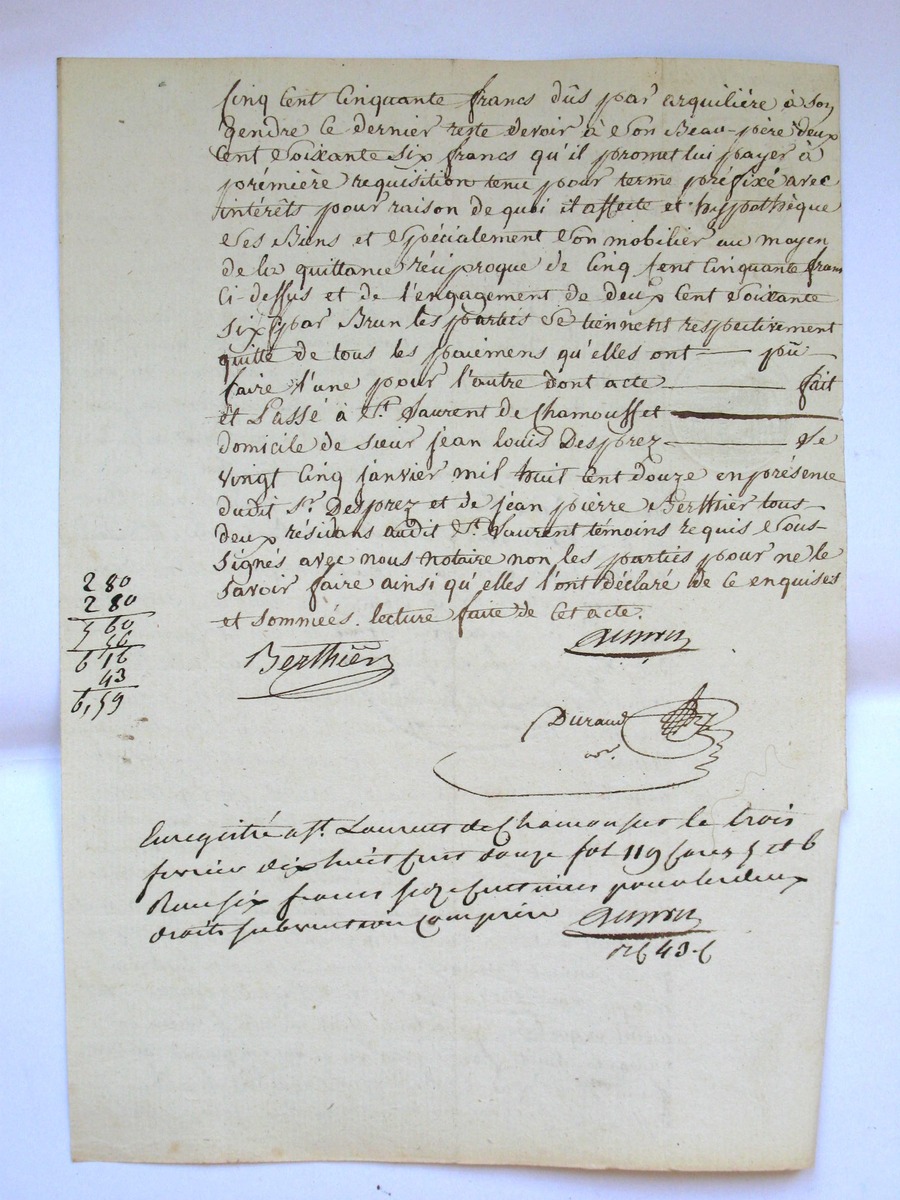 Cinq Cent Cinquante francs dûs par arquilière à son
gendre ce dernier reste devoir à Son Beau-père deux
Cent Soixante Six francs qu'il promet lui payer à
prémière requisition tenu pour terme préfixé avec
intérêts pour raison de quoi il affecte et hypothèque
Ses Biens et Spécialement Son mobilier au moyen
de la quittance réciproque de Cinq Cent Cinquante francs
Ci-dessus et de l'engagement de deux Cent Soixante
Six par Brun les parties Se tiennent respectivement
quitte de tous les paiemens qu'elles ont — pû —
faire l'une pour l'autre dont acte — fait
et Passé à St. Laurent de Chamousset —
domicile de sieur jean louis Desprez — Le
vingt Cinq janvier mil huit Cent douze en présence
dudit Sr. Desprez et de jean pierre Berthier tous
deux résidans audit St. Laurent témoins requis Sous-
Signés avec nous notaire non les parties pour ne le
Savoir faire ainsi qu'elles l'ont déclaré de Ce enquises
et sommées. lecture faite de Cet acte.
280
280
560
56
616
43
6,59
Berthier
Durand
nore.
Enregistré a St. Laurent de Chamousset le trois
fevrier dix huit Cent douze fol 119 Cases 5 et 6
Reçu six francs seize Centimes pour les deux
droits subvention Comprise
43